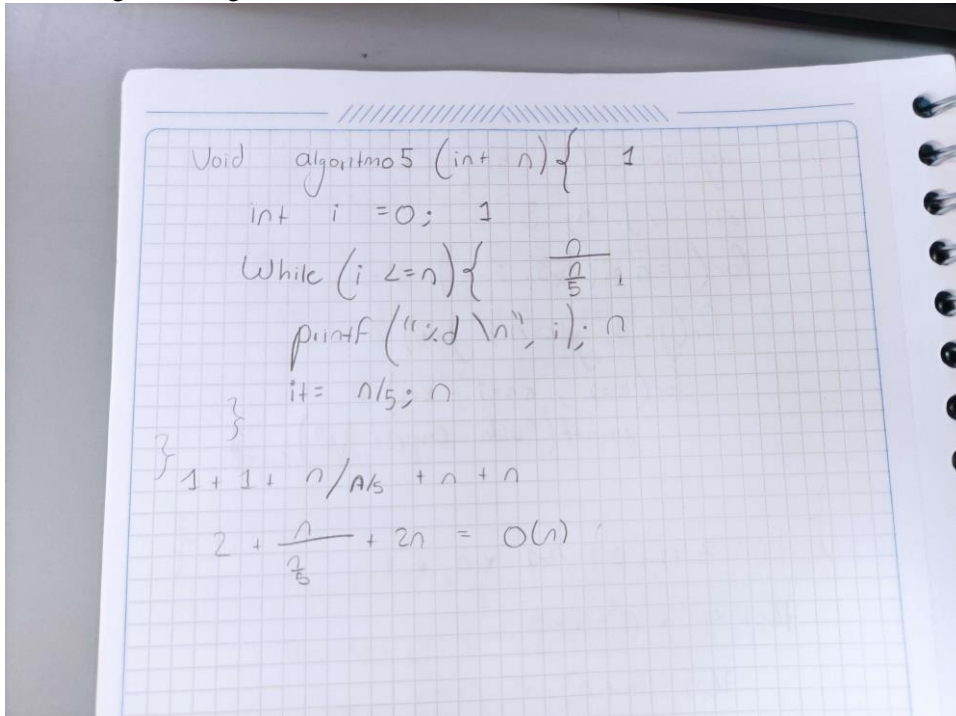 Void algoritmo5 (int n){ 1
int i =0; 1
While (i <=n){ n/n/5
printf ("%d \n", i); n
i+= n/5; n
}
}
1 + 1 + n/n/5 + n + n
2 + n/n/5 + 2n = O(n)